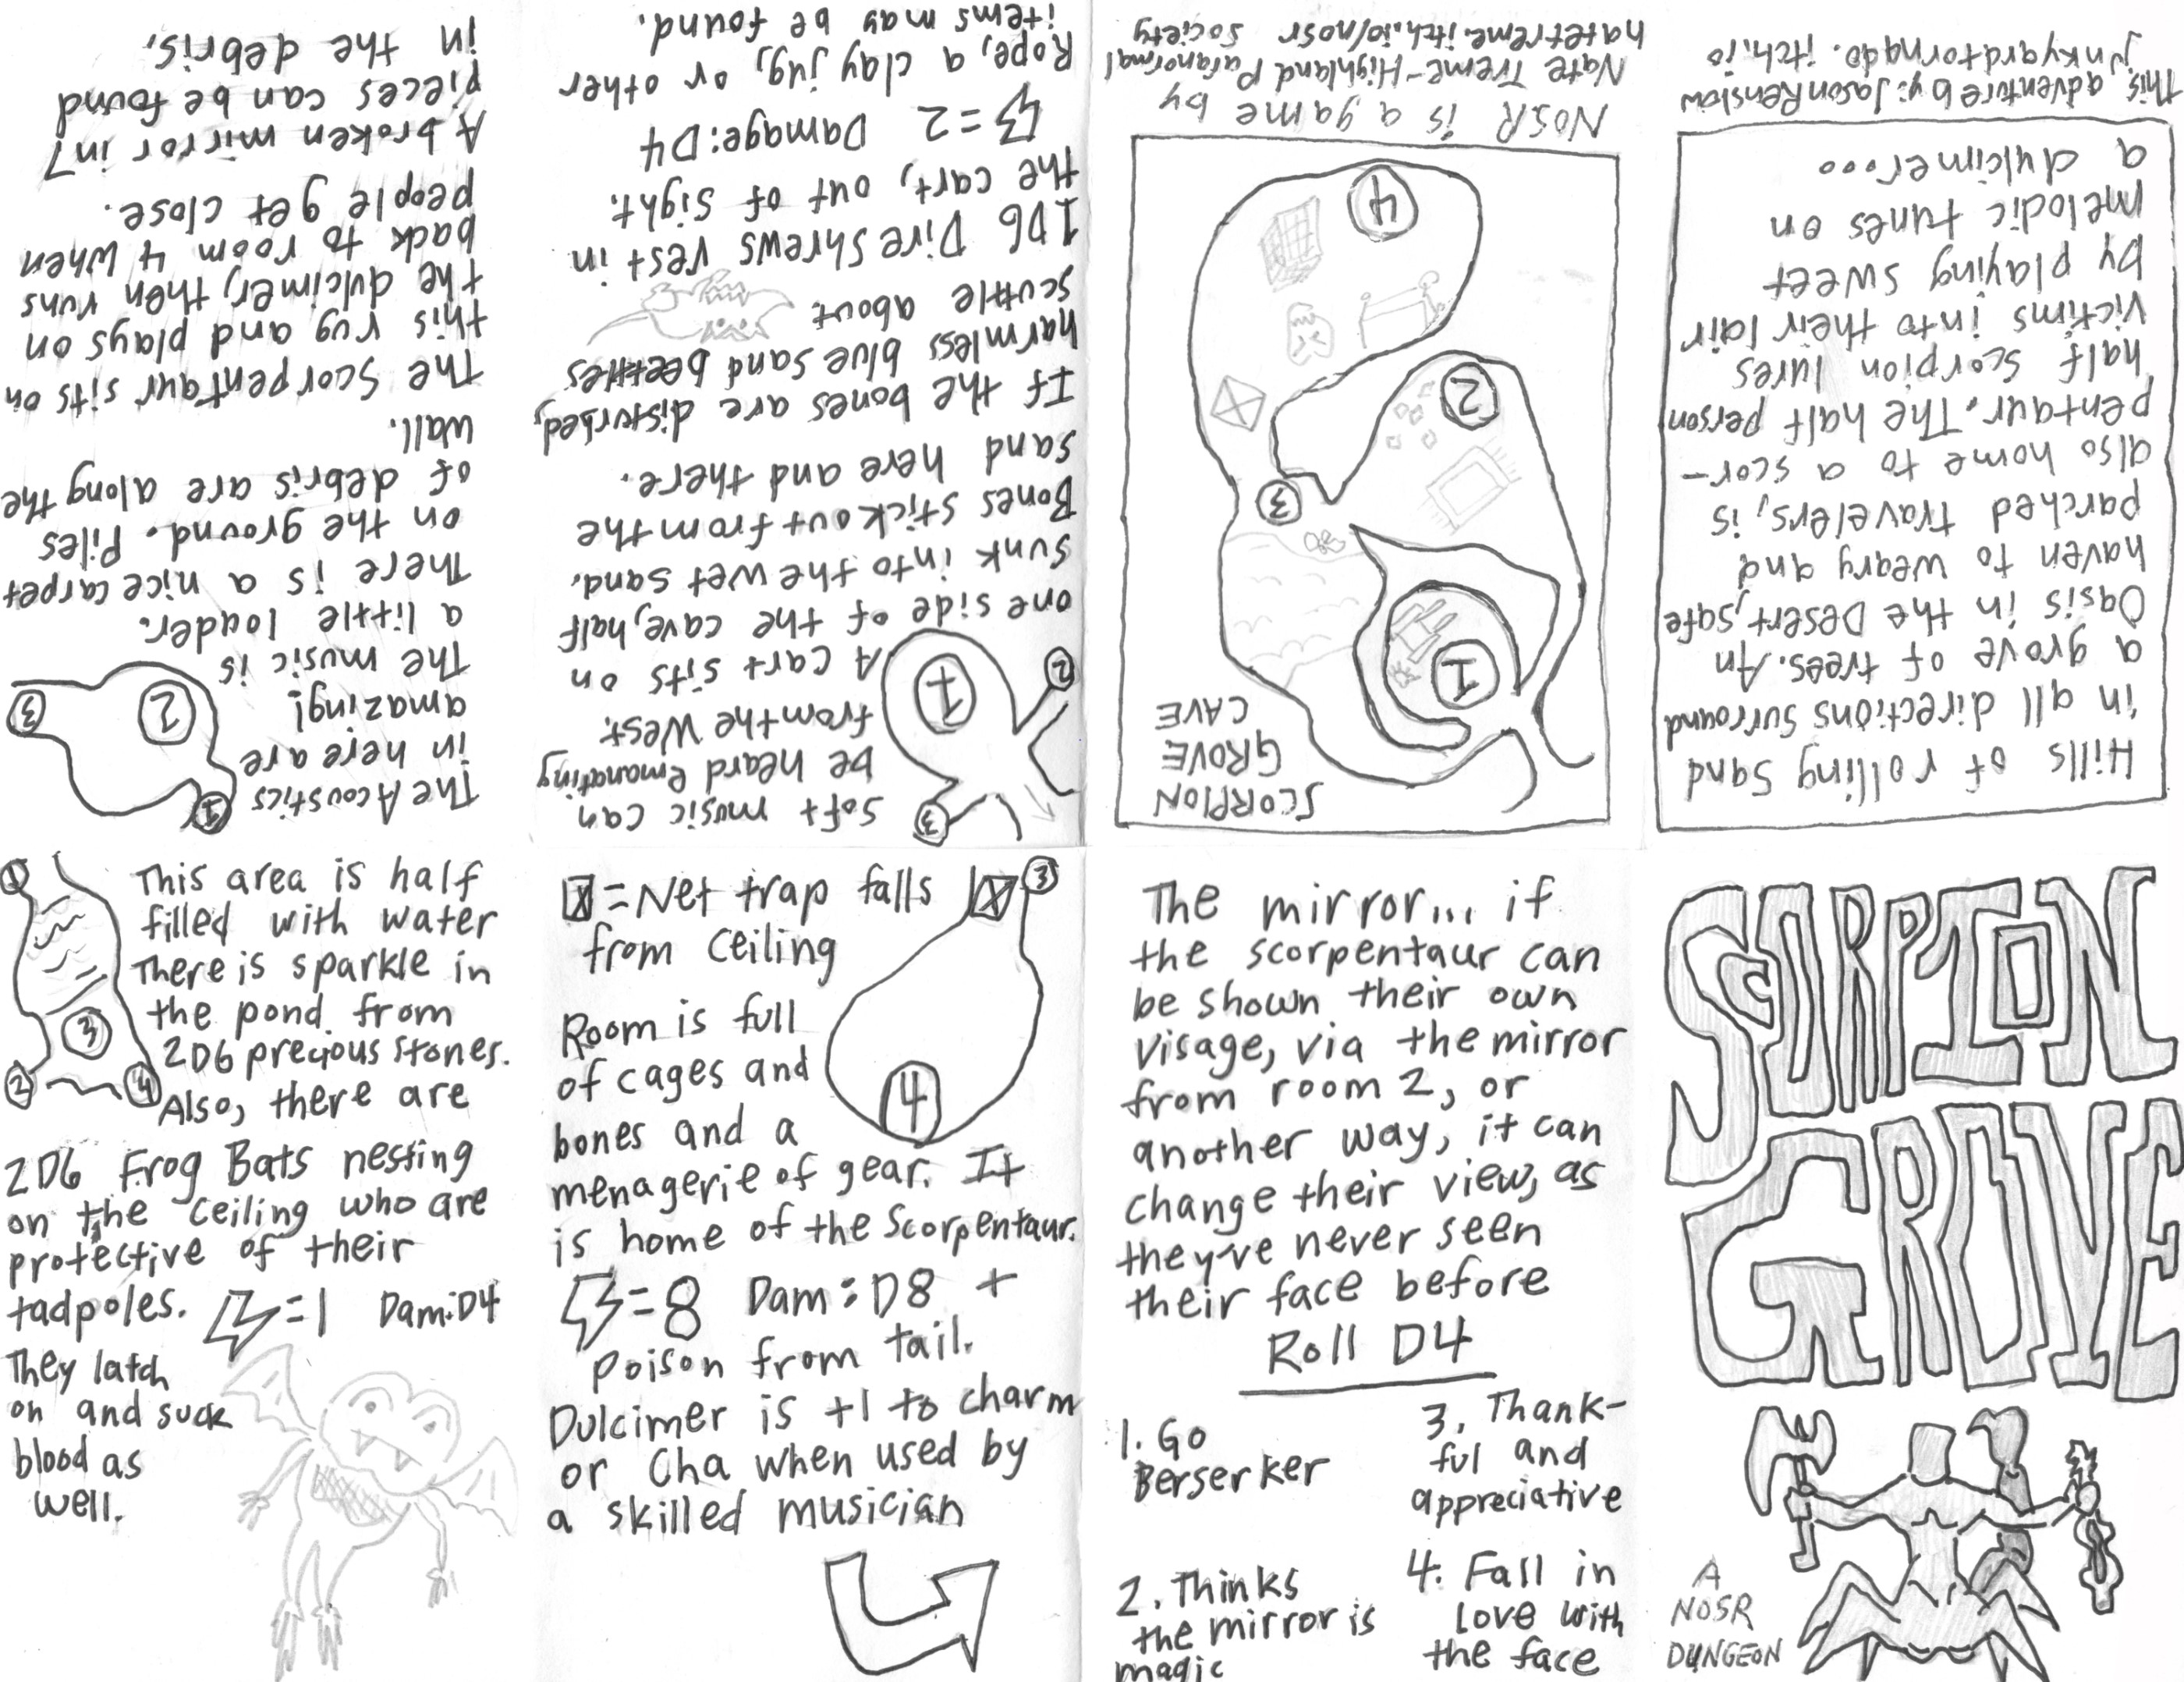 SCORPION
GROVE
A
NOSR
DUNGEON
Hills of rolling Sand
in all directions surround
a grove of trees. An
Oasis in the Desert, safe
haven to weary and
parched travelers, is
also home to a scor-
pentaur. The half person
half scorpion lures
victims into their lair
by playing sweet
melodic tunes on
a dulcimer...
This adventure by: Jason Renslow
junkyardtornado.itch.io
SCORPION
GROVE
CAVE
1
2
3
4
NOSR is a game by
Nate Treme-Highland Paranormal
natetreme.itch.io/nosr Society
Soft music can
be heard emanating
from the West.
A cart sits on
one side of the cave, half
sunk into the wet sand.
Bones stick out from the
sand here and there.
If the bones are disturbed,
harmless blue sand beetles
scuttle about.
1D6 Dire Shrews rest in
the cart, out of sight.
=2 Damage: D4
Rope, a clay jug, or other
items may be found.
3
1
2
The Acoustics
in here are
amazing!
The music is
a little louder.
There is a nice carpet
on the ground. Piles
of debris are along the
wall.
The Scorpentaur sits on
this rug and plays on
the dulcimer, then runs
back to room 4 when
people get close.
A broken mirror in 7
pieces can be found
in the debris.
1
2
3
This area is half
filled with water
There is sparkle in
the pond from
2D6 precious stones.
Also, there are
2D6 Frog Bats nesting
on the ceiling who are
protective of their
tadpoles. =1 Dam:D4
They latch
on and suck
blood as
well.
1
3
2
4
X=Net trap falls
from Ceiling
X
3
Room is full
of cages and
bones and a
menagerie of gear. It
is home of the Scorpentaur.
4
=8 Dam: D8 +
Poison from tail.
Dulcimer is +1 to charm
or Cha when used by
a skilled musician
The mirror... if
the scorpentaur can
be shown their own
visage, via the mirror
from room 2, or
another way, it can
change their view, as
they've never seen
their face before
Roll D4
1. Go
Berserker
2. Thinks
the mirror is
magic
3. Thank-
ful and
appreciative
4. Fall in
love with
the face